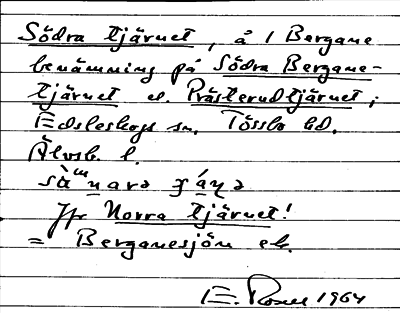 Södra tjärnet, å 1 Bergane
benämning på Södra Bergane-
tjärnet el. Prästerudtjärnet i
Edsleskogs sn. Tössbo hd.
Älvsb. l.
Jfr Norra tjärnet!
= Berganesjön ek.
E. Rosell 1964